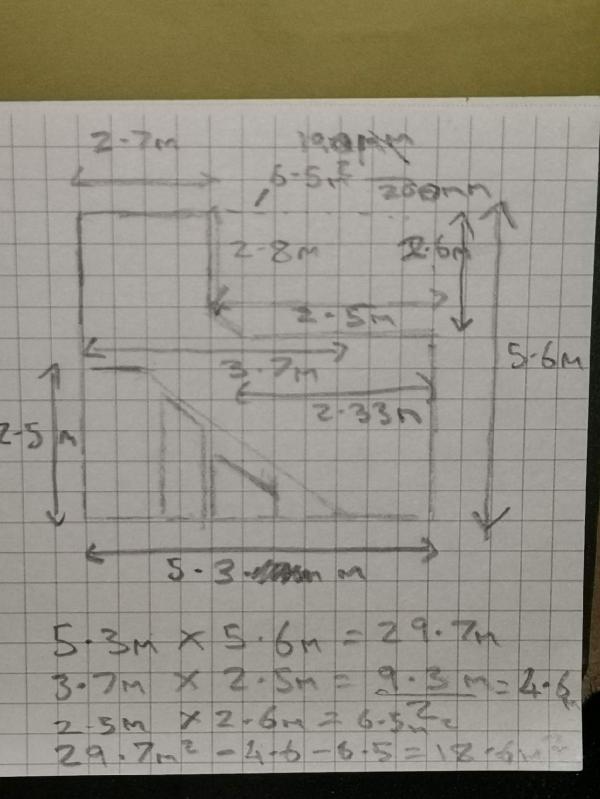 2.7m
6.5m²
200mm
2.8m
2.6m
2.5m
3.7m
5.6m
2.33m
2.5m
5.3 m
5.3m × 5.6m = 29.7m
3.7m × 2.5m = 9.3m/2 = 4.6
2.5m × 2.6m = 6.5m²
29.7m² - 4.6 - 6.5 = 18.6m²